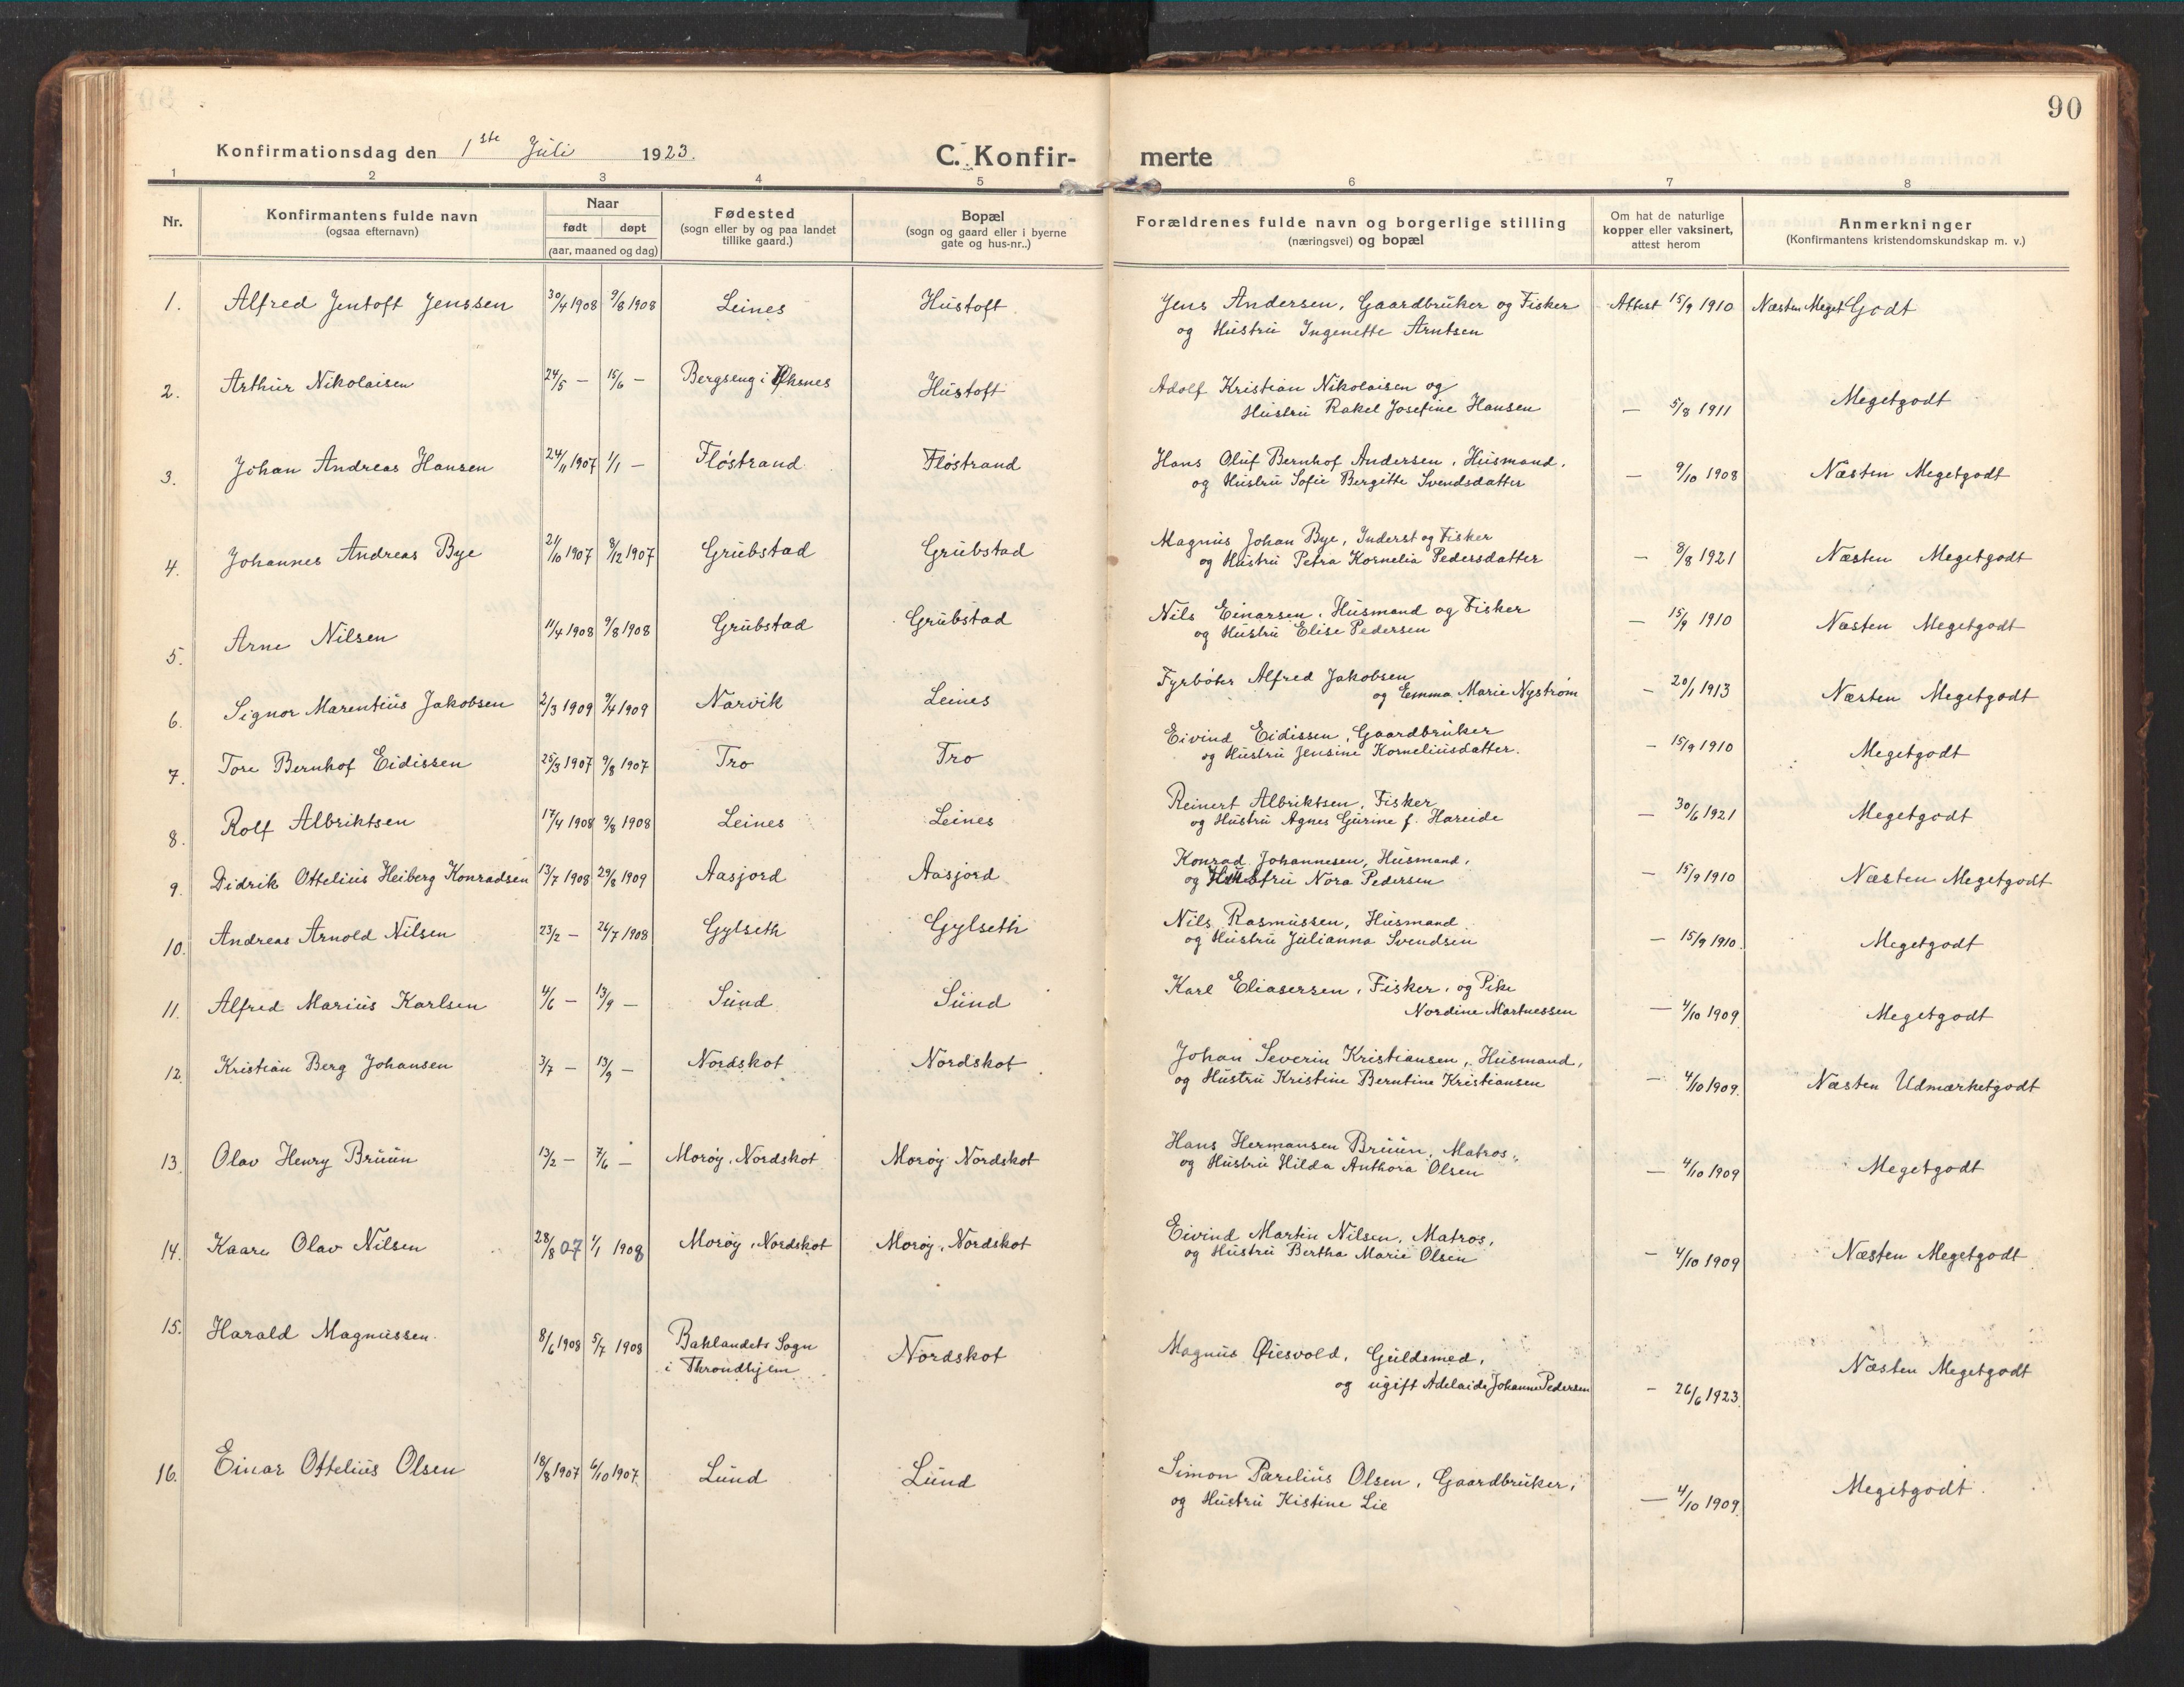 90
Konfirmationsdag den 1ste Juli 1923. C. Konfir- merte
1 2 3 4 5 6 7 8
Nr. Konfirmantens fulde navn (ogsaa efternavn) Naar født døpt (aar, maaned og dag) Fødested (sogn eller by og paa landet tillike gaard.) Bopæl (sogn og gaard eller i byerne gate og hus-nr..) Forældrenes fulde navn og borgerlige stilling (næringsvei) og bopæl Om hat de naturlige kopper eller vaksinert, attest herom Anmerkninger (Konfirmantens kristendomskundskap m. v.)
1. Alfred Jentoft Jenssen 30/4 1908 9/8 1908 Leines Hustoft Jens Andersen, Gaardbruker og Fisker Attest 15/9 1910 Næsten Meget Godt
og Hustru Ingenette Arntsen
2. Arthur Nikolaisen 24/5 — 15/6 — Bergseng i Øksnes Hustoft Adolf Kristian Nikolaisen og
Hustru Rakel Josefine Hansen — 5/8 1911 Megetgodt
3. Johan Andreas Hansen 24/11 1907 1/1 — Fløstrand Fløstrand Hans Oluf Bernhof Andersen, Husmand,
og Hustru Sofie Bergitte Svendsdatter — 9/10 1908 Næsten Megetgodt
4. Johannes Andreas Bye 21/10 1907 8/12 1907 Grubstad Grubstad Magnus Johan Bye, Inderst og Fisker
og Hustru Petra Kornelia Pedersdatter — 8/8 1921 Næsten Megetgodt
5. Arne Nilsen 11/4 1908 9/8 1908 Grubstad Grubstad Nils Einarsen, Husmand og Fisker
og Hustru Elise Pedersen — 15/9 1910 Næsten Megetgodt
6. Signor Marentius Jakobsen 2/3 1909 9/4 1909 Narvik Leines Fyrbøter Alfred Jakobsen
og Emma Marie Nystrøm — 20/1 1913 Næsten Megetgodt
7. Tore Bernhof Eidissen 25/3 1907 9/8 1907 Tro Tro Eivind Eidissen, Gaardbruker
og Hustru Jensine Korneliusdatter. — 15/9 1910 Megetgodt
8. Rolf Albriktsen 17/4 1908 9/8 1908 Leines Leines Reinert Albriktsen, Fisker
og Hustru Agnes Gurine f. Hareide — 30/6 1921 Megetgodt
9. Didrik Ottelius Heiberg Konradsen 13/7 1908 29/8 1909 Aasjord Aasjord Konrad Johannesen, Husmand,
og Hustru Nora Pedersen — 15/9 1910 Næsten Megetgodt
10. Andreas Arnold Nilsen 23/2 — 26/7 1908 Gylseth Gylseth Nils Rasmussen, Husmand
og Hustru Julianna Svendsen — 15/9 1910. Megetgodt
11. Alfred Marius Karlsen 4/6 — 13/9 — Sund Sund Karl Eliasersen, Fisker, og Pike
Nordine Martnessen — 4/10 1909 Megetgodt
12. Kristian Berg Johansen 3/7 — 13/9 — Nordskot Nordskot Johan Severin Kristiansen, Husmand,
og Hustru Kristine Berntine Kristiansen — 4/10 1909. Næsten Udmærketgodt
13. Olav Henry Bruun 13/2 — 7/6 — Morøy, Nordskot Morøy Nordskot Hans Hermansen Bruun, Matros,
og Hustru Hilda Anthora Olsen — 4/10 1909 Megetgodt
14. Kaare Olav Nilsen 28/8 07 1/1 1908 Morøy, Nordskot Morøy, Nordskot Eivind Martin Nilsen, Matros,
og Hustru Bertha Marie Olsen — 4/10 1909 Næsten Megetgodt
15. Harald Magnussen. 8/6 1908 5/7 1908 Baklandets Sogn Nordskot Magnus Øiesvold, Guldsmed,
i Throndhjem og ugift Adelaide Johanne Pedersen — 26/6 1923. Næsten Megetgodt
16. Einar Ottelius Olsen 18/8 1907 6/10 1907. Lund Lund Simon Parelius Olsen, Gaardbruker,
og Hustru Kistine Lie — 4/10 1909. Megetgodt.